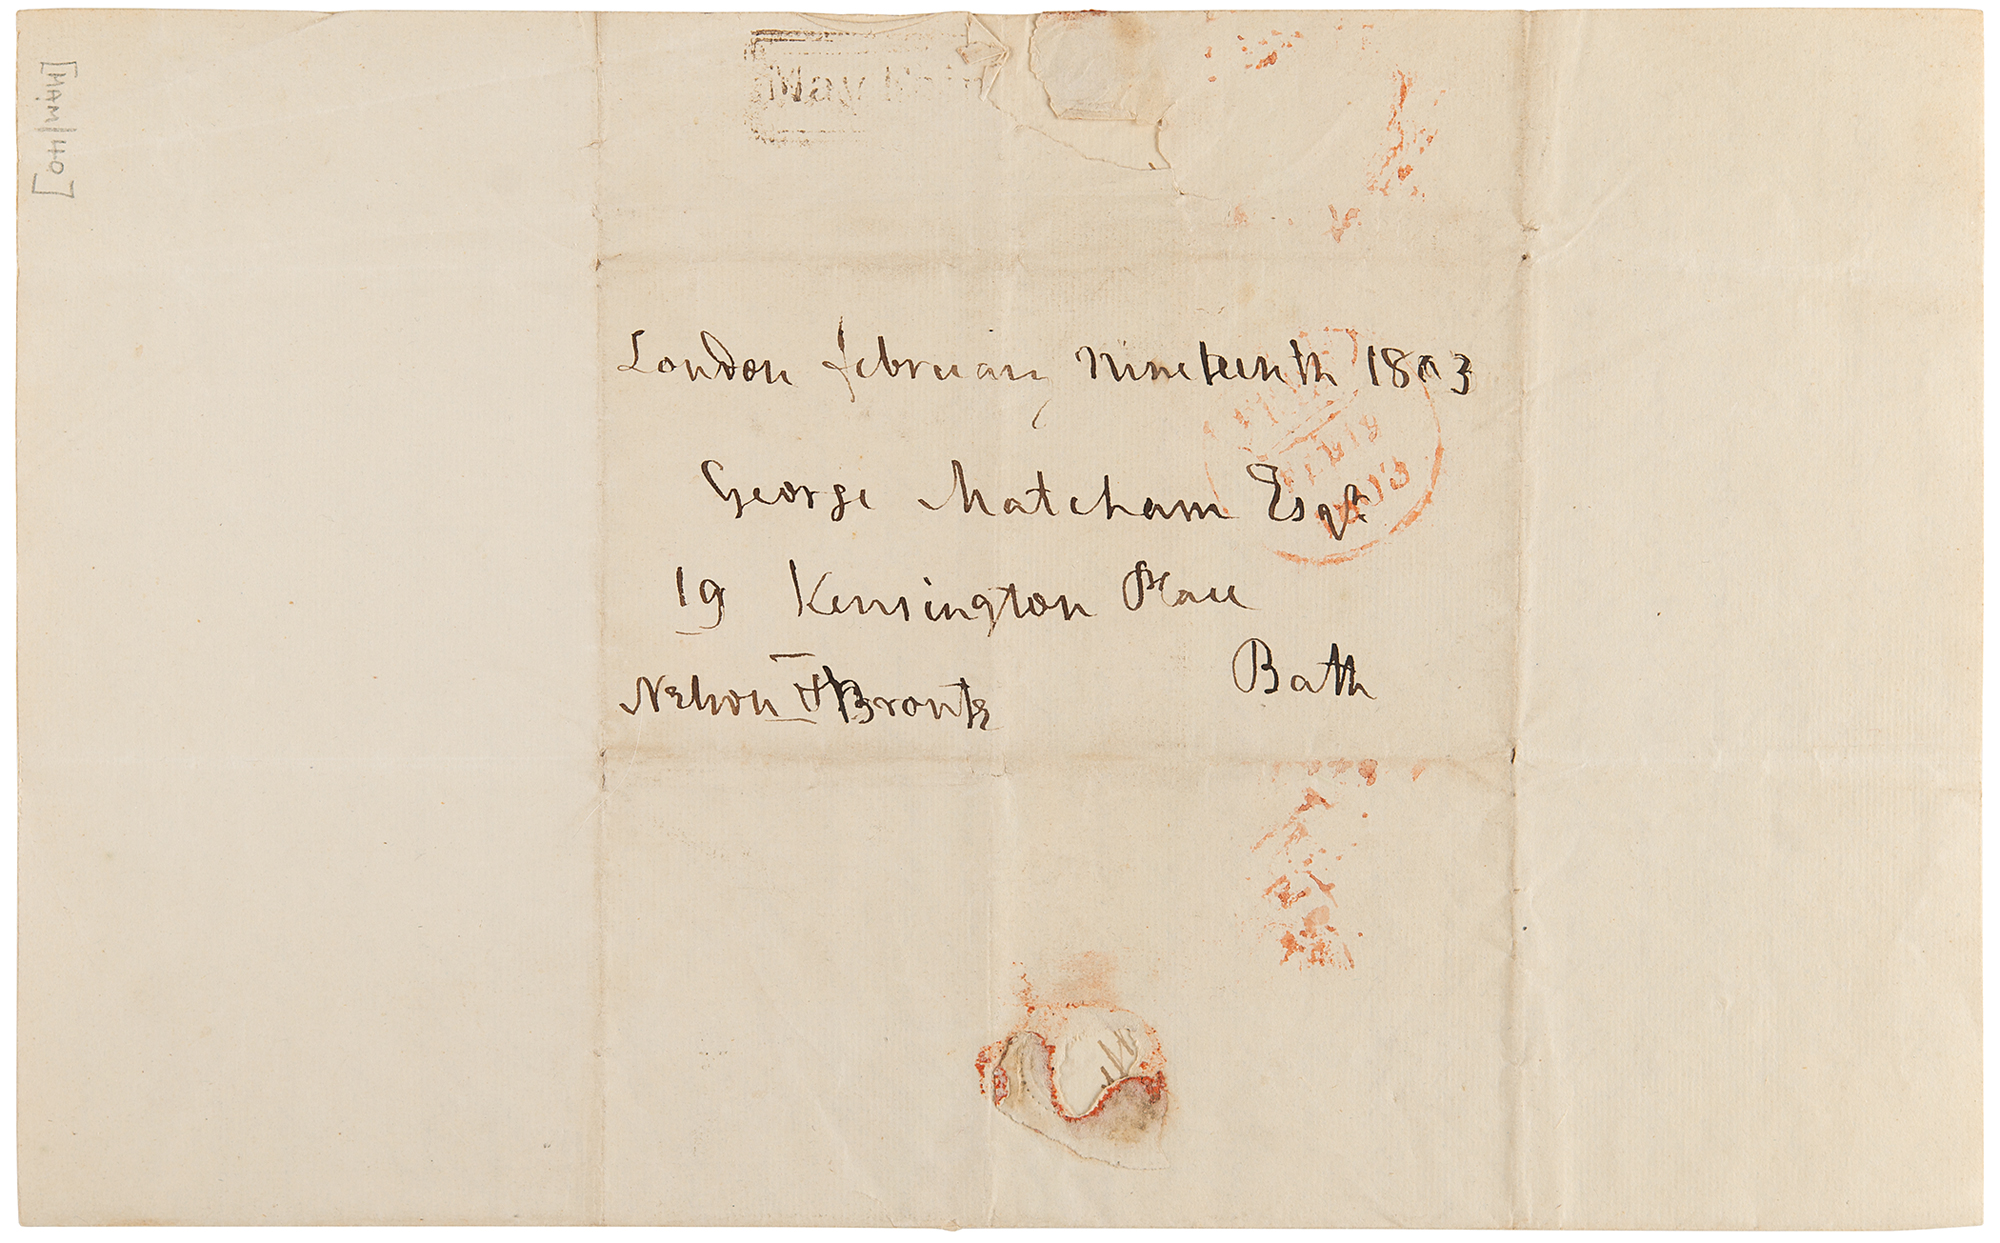 [MAM/40]
May
London february Nineteenth 1803
George Matcham Esqr
19 Kensington Place
Bath
Nelson & Bronte
FE 19